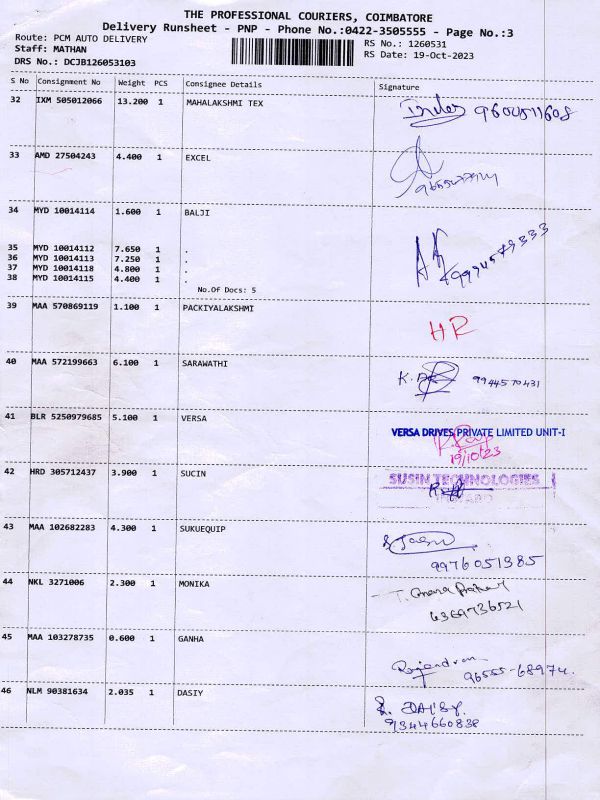 THE PROFESSIONAL COURIERS, COIMBATORE
Delivery Runsheet - PNP - Phone No.:0422-3505555 - Page No.:3
Route: PCM AUTO DELIVERY
RS No.: 1260531
Staff: MATHAN
RS Date: 19-Oct-2023
DRS No.: DCJB126053103
S No Consignment No Weight PCS Consignee Details Signature
32 IXM 505012066 13.200 1 MAHALAKSHMI TEX
33 AMD 27504243 4.400 1 EXCEL
34 MYD 10014114 1.600 1 BALJI
35 MYD 10014112 7.650 1 .
36 MYD 10014113 7.250 1 .
37 MYD 10014118 4.800 1 .
38 MYD 10014115 4.400 1 .
No.Of Docs: 5
9994579333
39 MAA 570869119 1.100 1 PACKIYALAKSHMI
HR
40 MAA 572199663 6.100 1 SARAWATHI
9944570431
41 BLR 5250979685 5.100 1 VERSA
VERSA DRIVES PRIVATE LIMITED UNIT-I
19/10/23
42 HRD 305712437 3.900 1 SUCIN
SUSIN TECHNOLOGIES
43 MAA 102682283 4.300 1 SUKUEQUIP
9976051385
44 NKL 3271006 2.300 1 MONIKA
6369736521
45 MAA 103278735 0.600 1 GANHA
Rajendran
96555-68974.
46 NLM 90381634 2.035 1 DASIY
9344660838